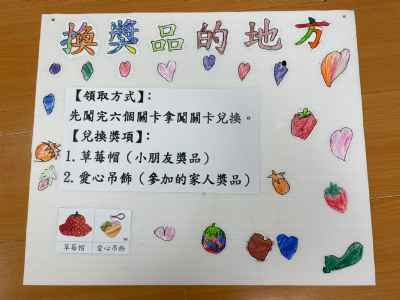 換獎品的地方
【領取方式】：
先闖完六個關卡拿闖關卡兌換。
【兌換獎項】：
1. 草莓帽（小朋友獎品）
2. 愛心吊飾（參加的家人獎品）
草莓帽 愛心吊飾